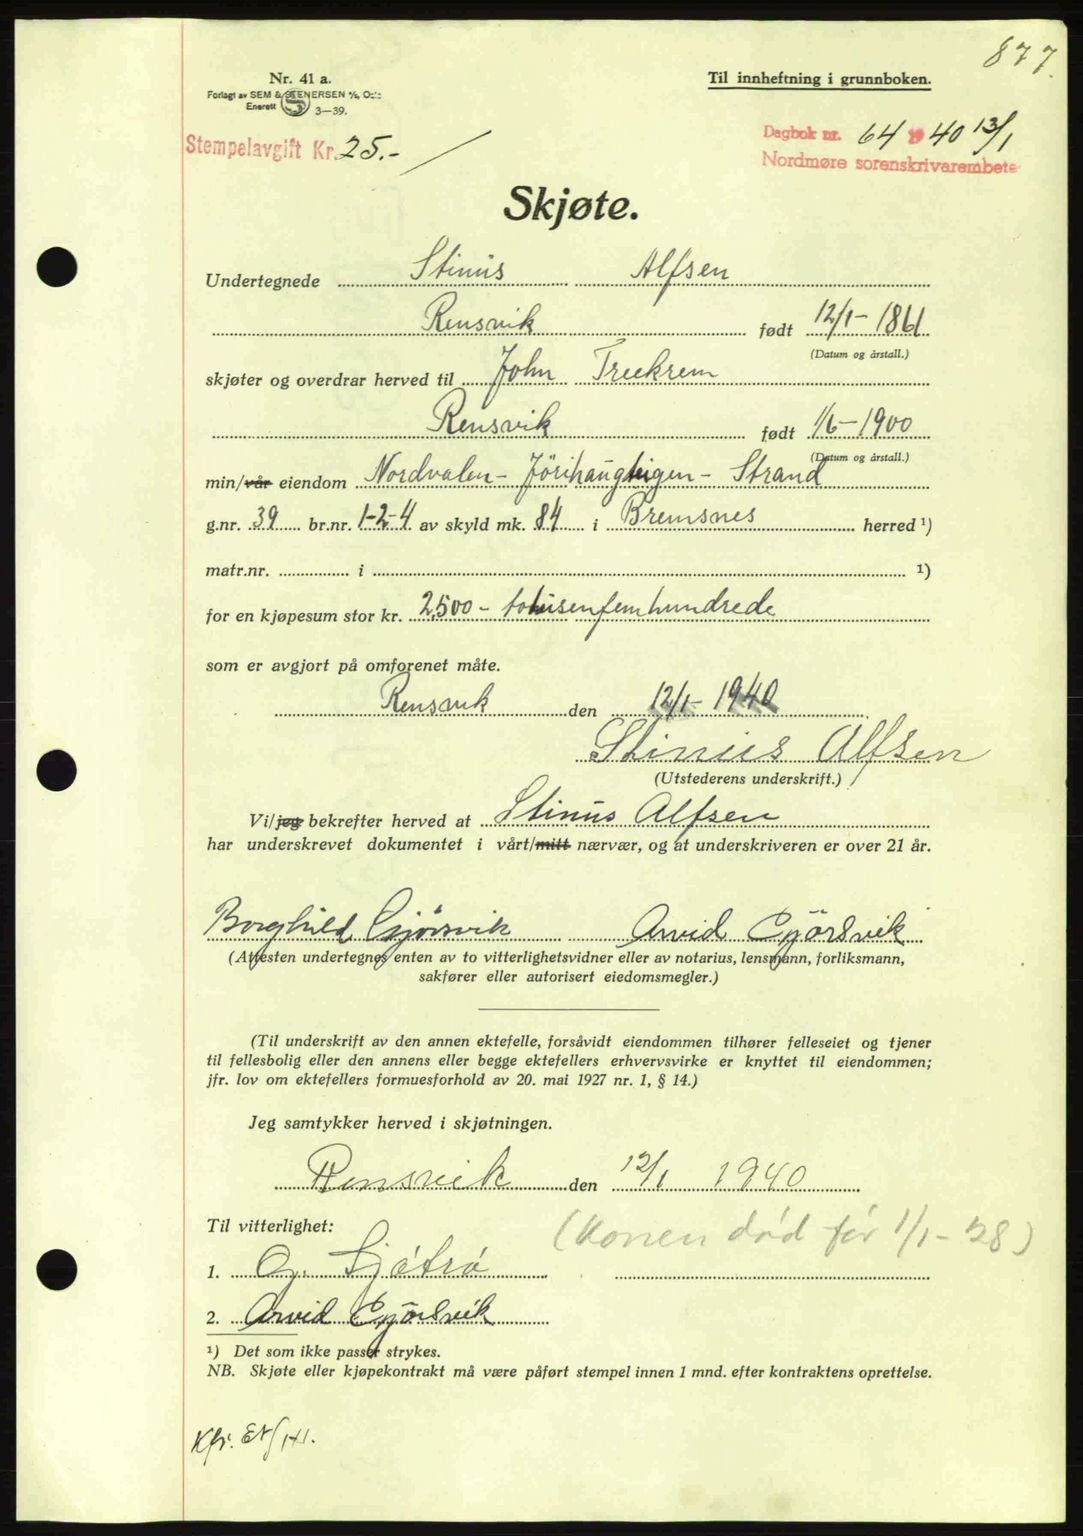 877.
Nr. 41 a.
Forlagt av SEM & STENERSEN A/S, Oslo
Enerett S 3—39.
Til innheftning i grunnboken.
Stempelavgift Kr. 25.-
Dagbok nr. 64 1940 13/1
Nordmøre sorenskrivarembete
Skjøte.
Undertegnede Stinus Alfsen
Rensvik født 12/1-1861
(Datum og årstall.)
skjøter og overdrar herved til John Treekrem
Rensvik født 1/6-1900
(Datum og årstall.)
min/vår eiendom Nordvalen- Jörihaugteigen- Strand
g.nr. 39 br.nr. 1-2-4 av skyld mk. 84 i Bremsnes herred ¹)
matr.nr. i ¹)
for en kjøpesum stor kr. 2500- totusenfemhundrede
som er avgjort på omforenet måte.
Rensvik den 12/1- 1940
Stinus Alfsen
(Utstederens underskrift.)
Vi/jeg bekrefter herved at Stinus Alfsen
har underskrevet dokumentet i vårt/mitt nærvær, og at underskriveren er over 21 år.
Borghild Gjörsvik Arvid Gjörsvik
(Attesten undertegnes enten av to vitterlighetsvidner eller av notarius, lensmann, forliksmann,
sakfører eller autorisert eiedomsmegler.)
(Til underskrift av den annen ektefelle, forsåvidt eiendommen tilhører felleseiet og tjener
til fellesbolig eller den annens eller begge ektefellers erhvervsvirke er knyttet til eiendommen;
jfr. lov om ektefellers formuesforhold av 20. mai 1927 nr. 1, § 14.)
Jeg samtykker herved i skjøtningen.
Rensvik den 12/1 1940
Til vitterlighet:
(Konen død før 1/1-28)
1. O. Sjåtrø
2. Arvid Gjörsvik
¹) Det som ikke passer strykes.
NB. Skjøte eller kjøpekontrakt må være påført stempel innen 1 mnd. efter kontraktens oprettelse.
Kfr.